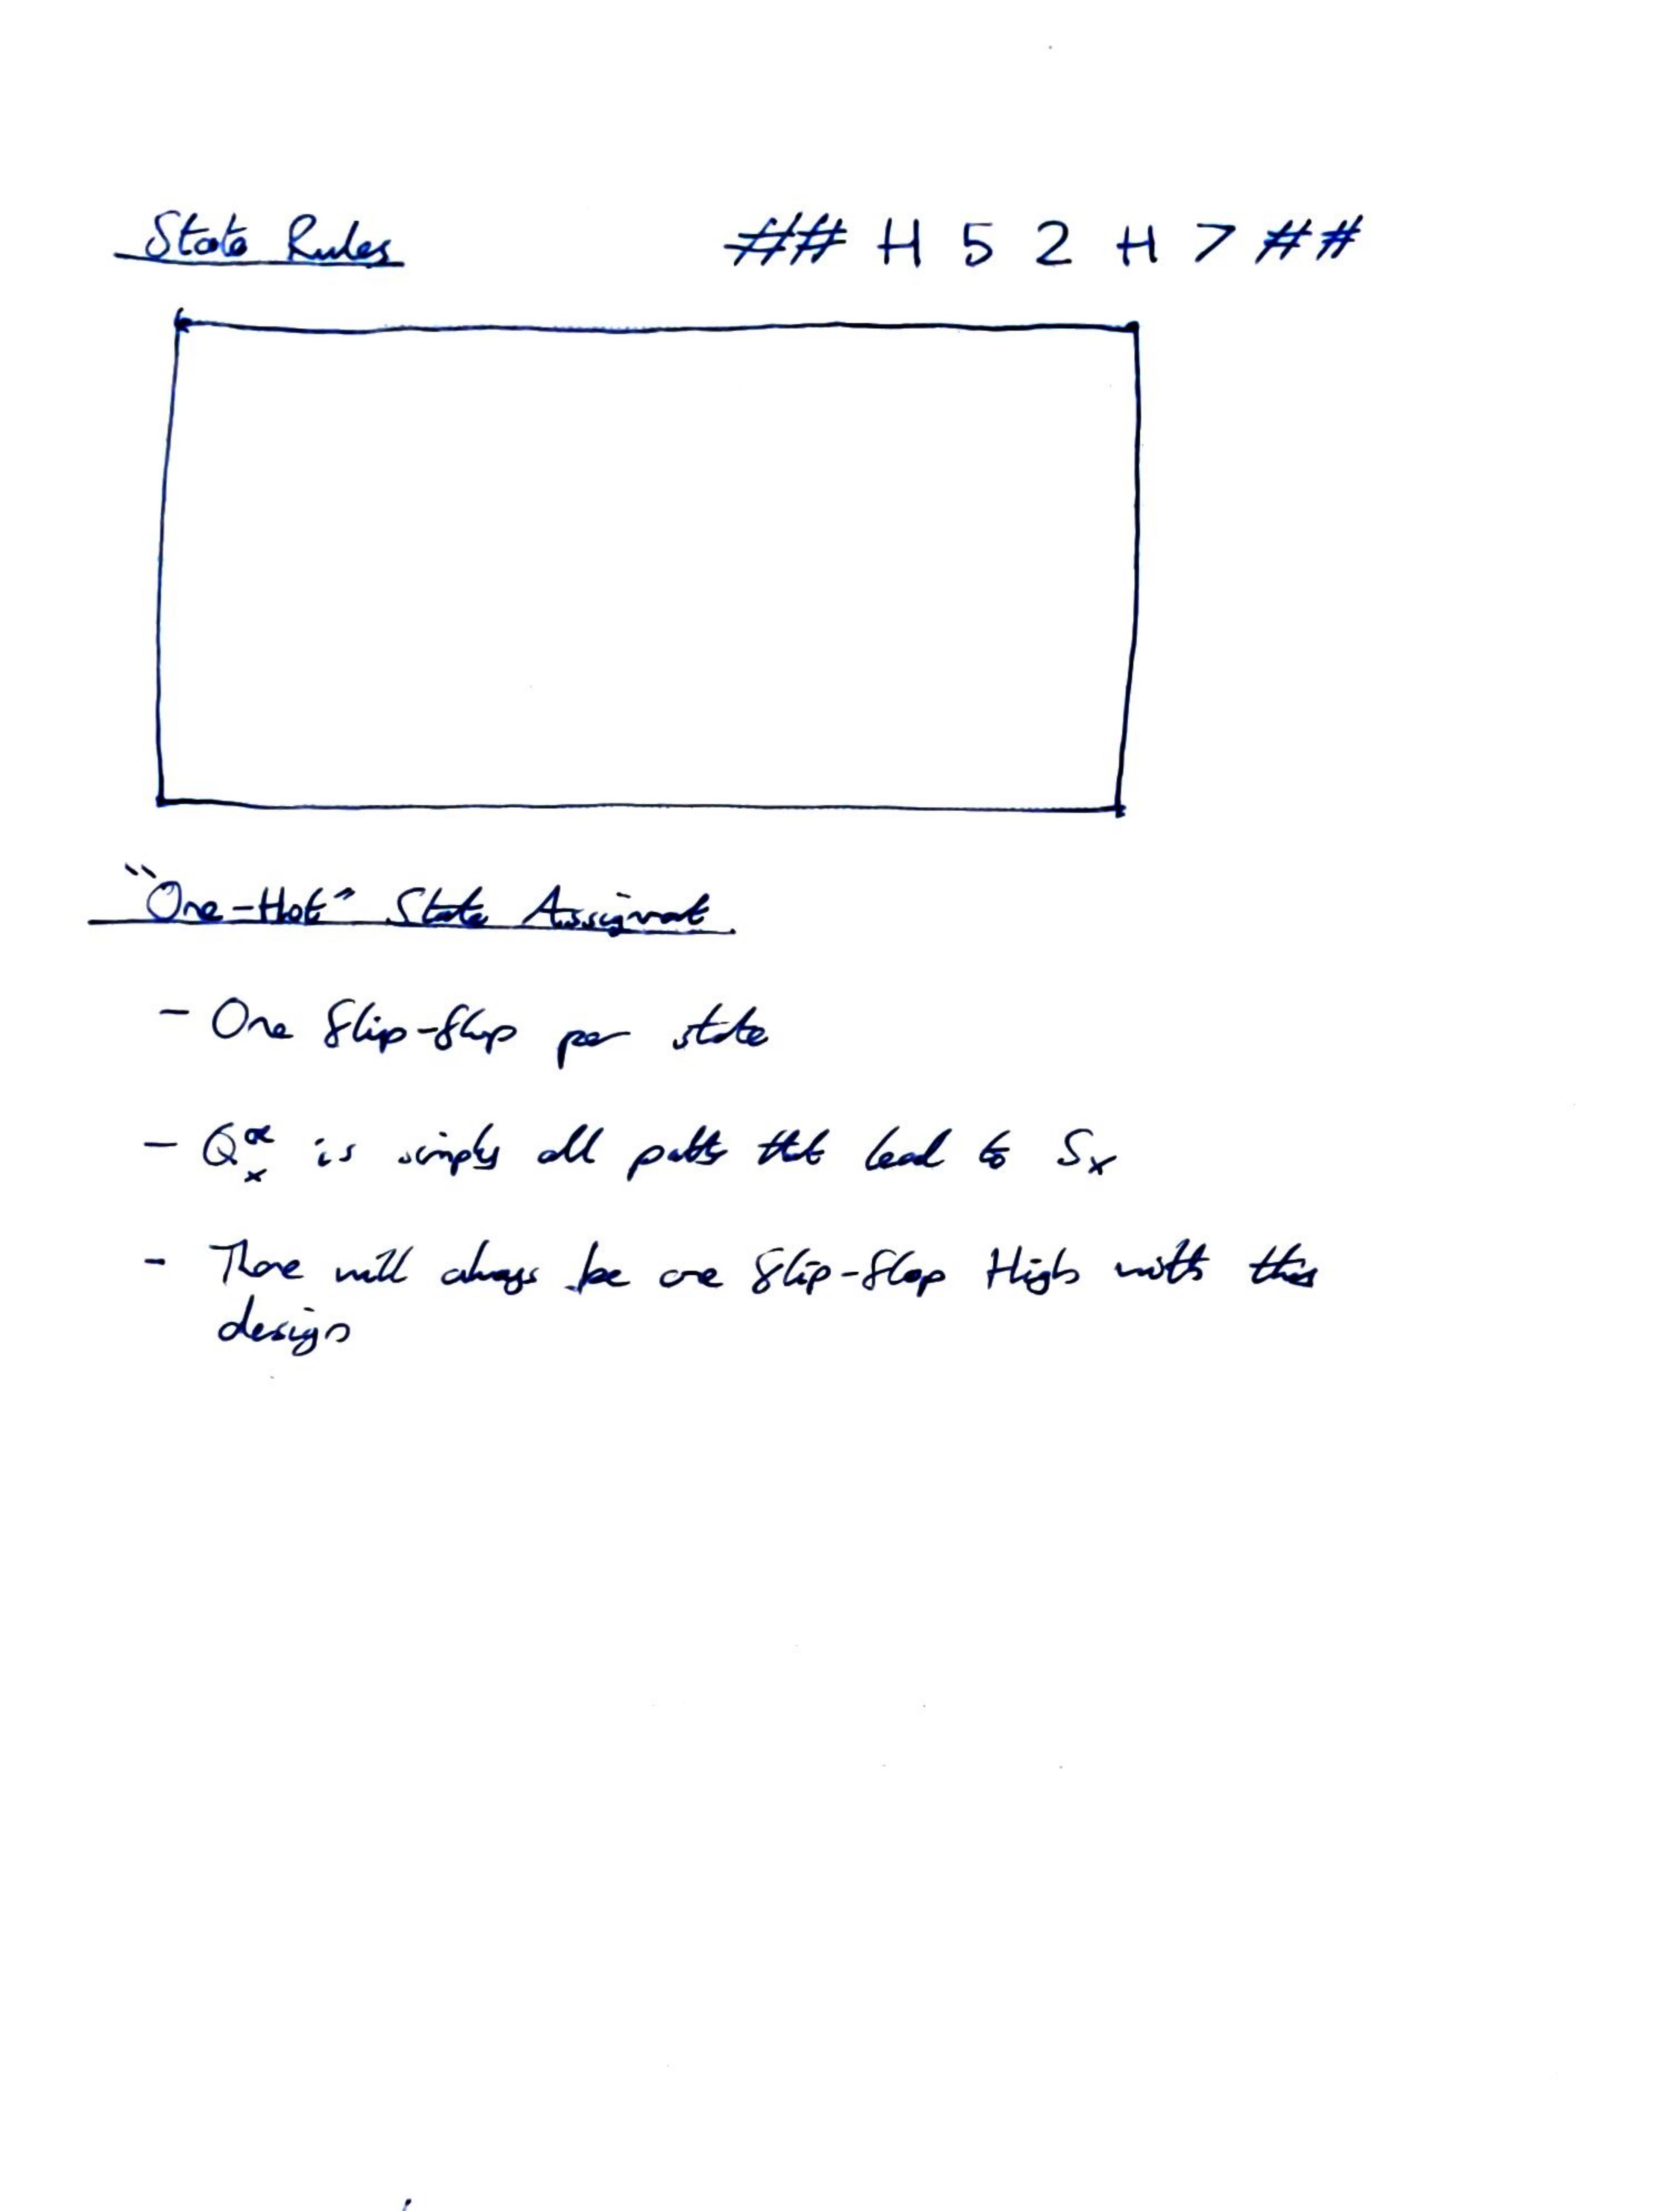 State Rules
## H 5 2 H 7 ##
"One-Hot" State Assignmt
- One flip-flop per state
- Qₓ^α is simply all paths that lead to Sₓ
- There will always be one flip-flop High with this
design